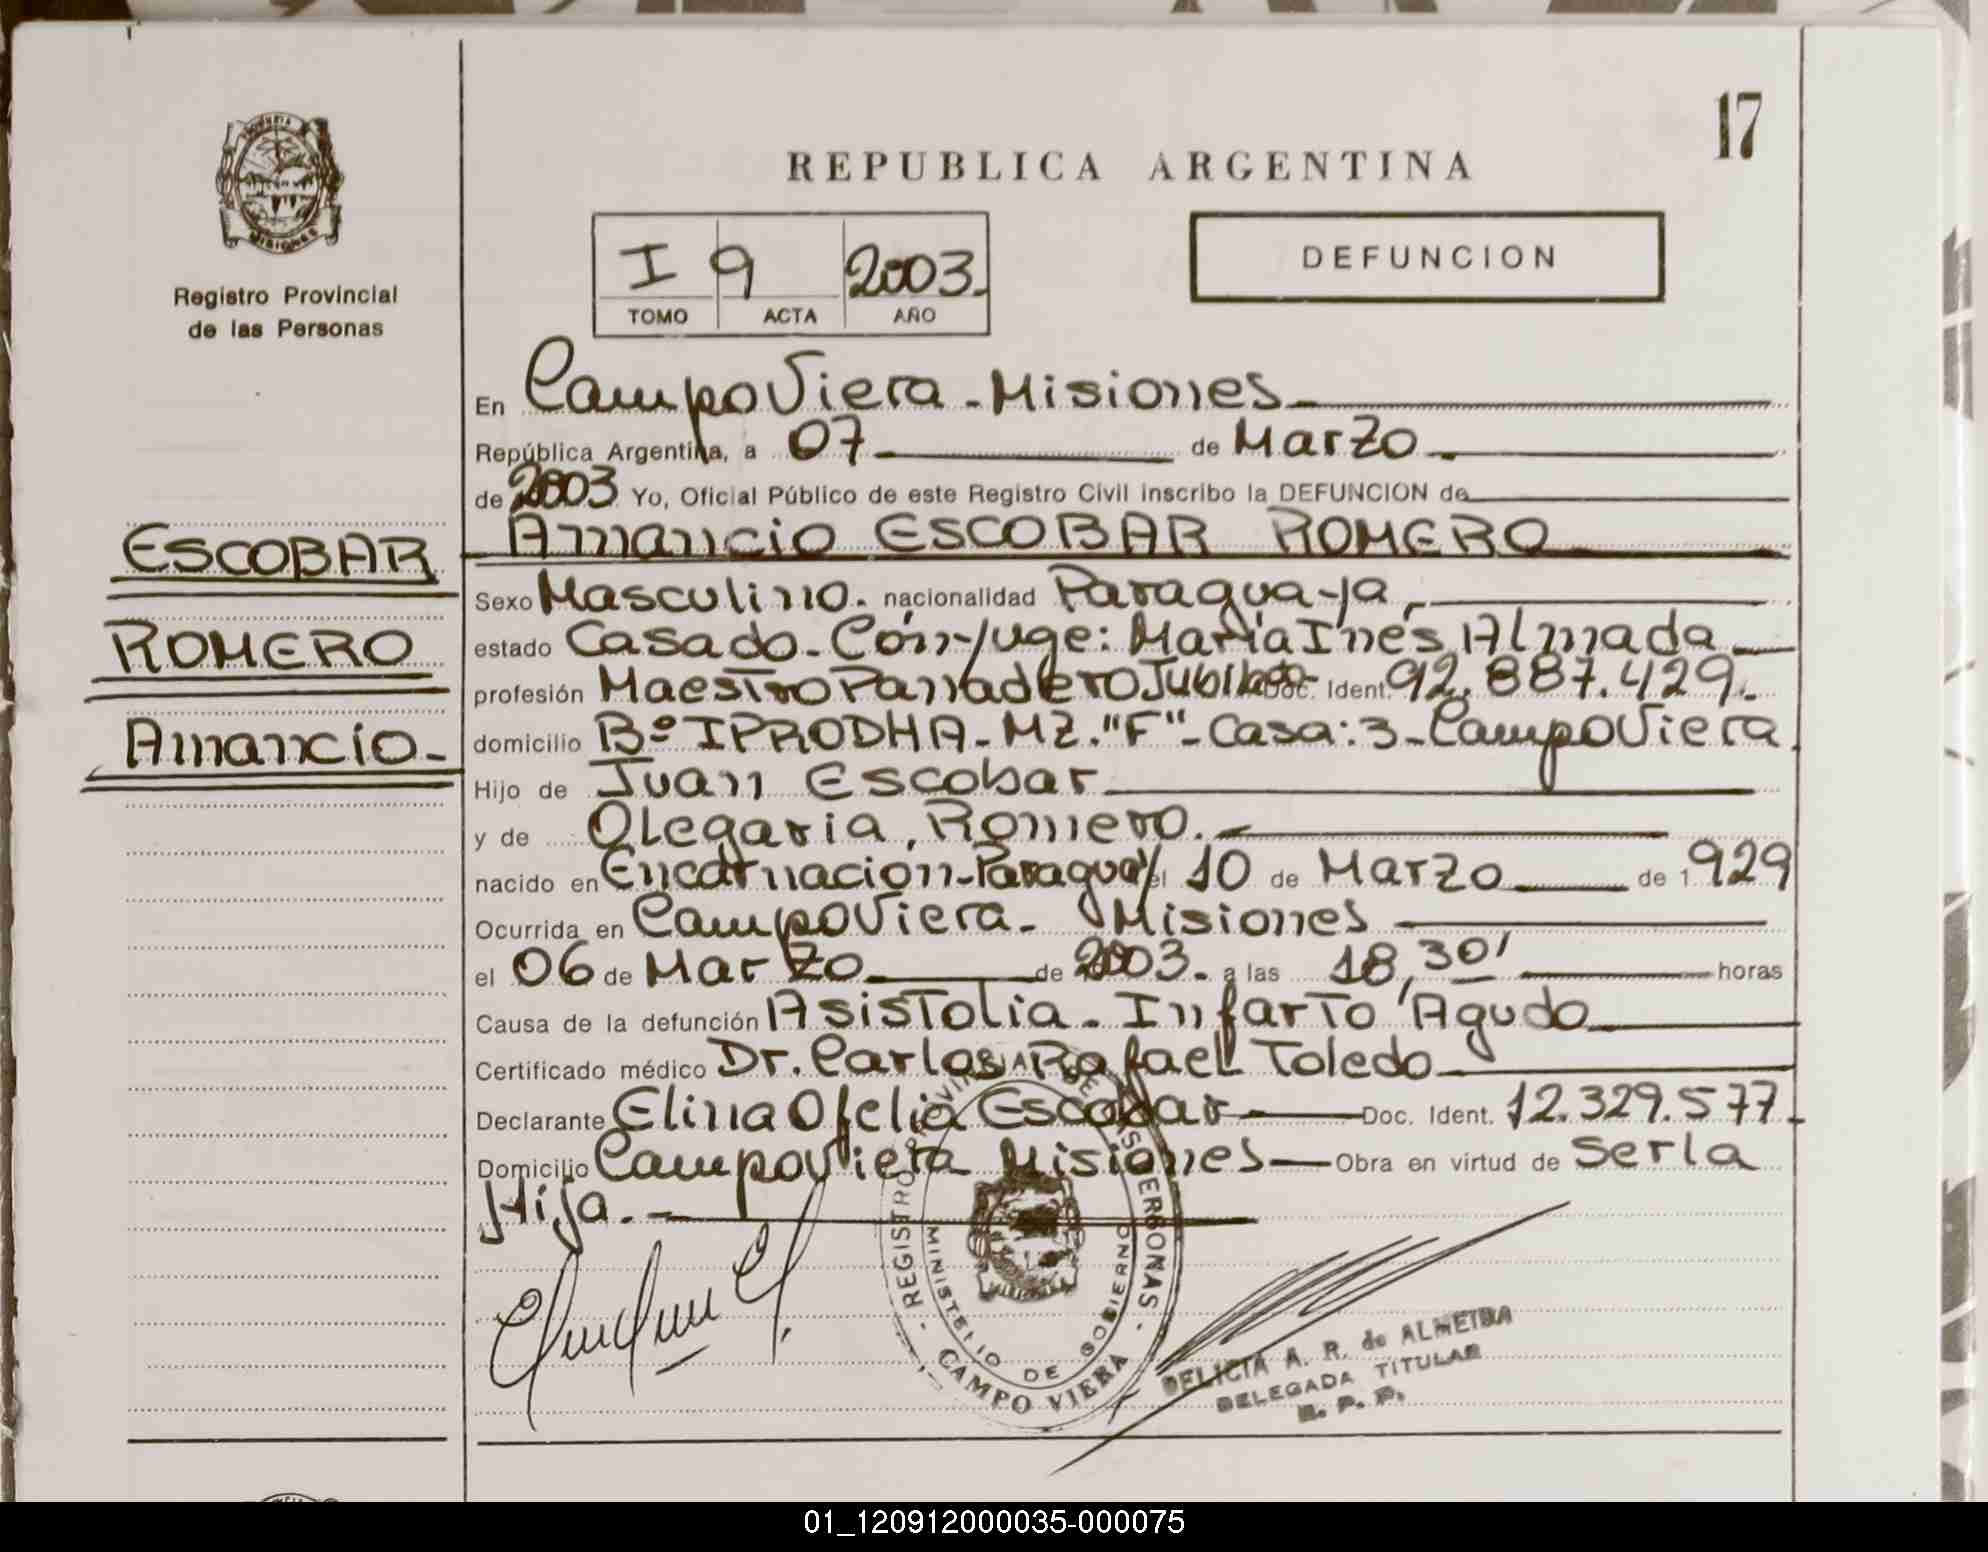 17
PROVINCIA
MISIONES
Registro Provincial
de las Personas
REPUBLICA ARGENTINA
I 9 2003.
TOMO ACTA AÑO
DEFUNCION
En Campo Viera - Misiones
República Argentina, a 07 de Marzo
de 2003 Yo, Oficial Público de este Registro Civil inscribo la DEFUNCION de
Amancio ESCOBAR ROMERO
ESCOBAR
ROMERO
Amancio
Sexo Masculino. nacionalidad Paraguaya,
estado Casado - Cónyuge: María Inés Almada
profesión Maestro Panadero Jubilado Doc. Ident. 92.887.429.
domicilio Bº IPRODHA - MZ. "F" - Casa: 3 - Campo Viera
Hijo de Juan Escobar
y de Olegaria Romero.
nacido en Encarnacion - Paraguay el 10 de Marzo de 1.929
Ocurrida en Campo Viera - Misiones
el 06 de Marzo de 2003. a las 18,30' horas
Causa de la defunción Asistolia - Infarto Agudo
Certificado médico Dr. Carlos Rafael Toledo
Declarante Elina Ofelia Escobar Doc. Ident. 12.329.577
Domicilio Campo Viera Misiones Obra en virtud de ser la
Hija.
MINISTERIO DE GOBIERNO
CAMPO VIERA
DELICIA A. R. de ALMEIDA
DELEGADA TITULAR
R. P. P.
01_120912000035-000075